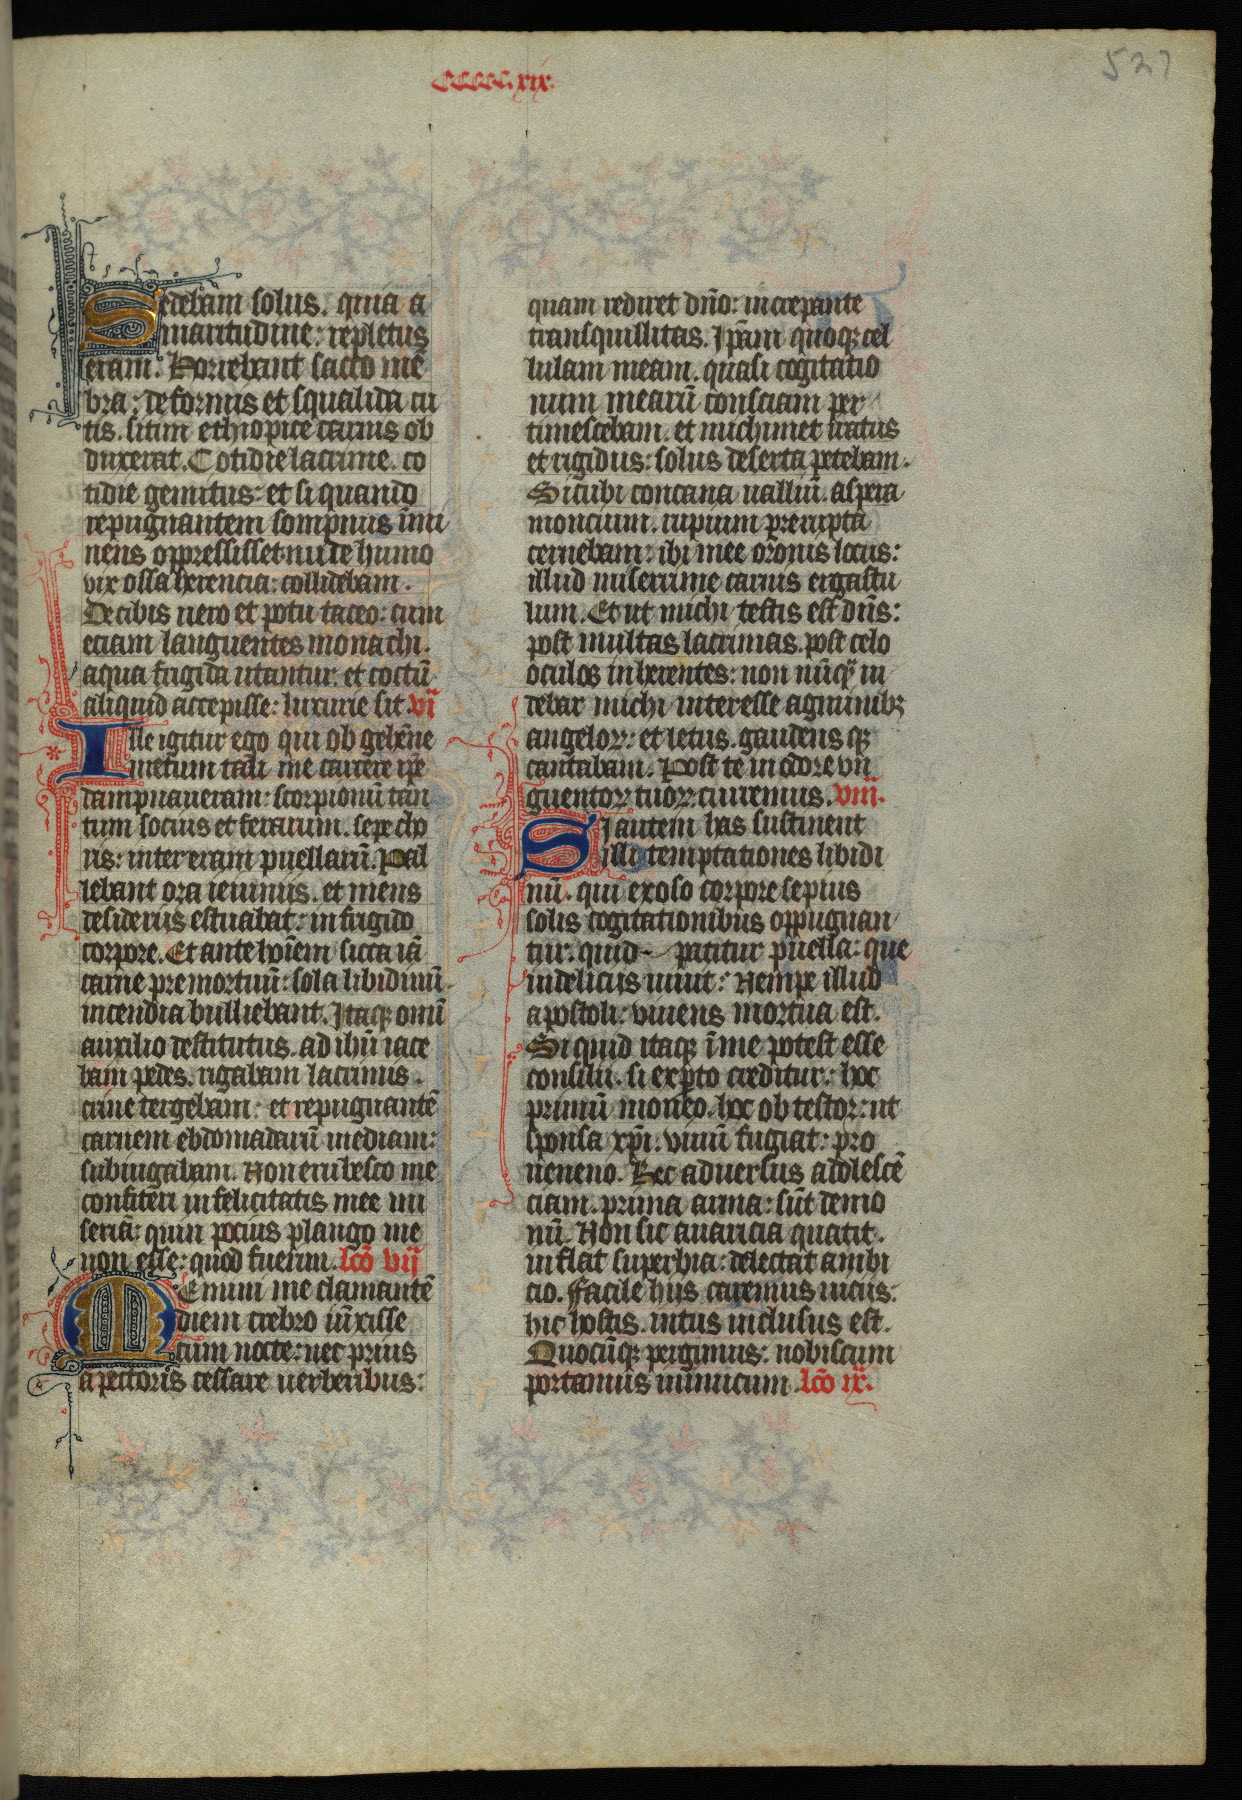 CCCCC.xix.
527
Sedebam solus. quia a
maritudine: repletus
eram. Horrebant sacco mē
bra: deformis et squalida cu
tis. sitim ethiopice carnis ob
duxerat. Cotidie lacrime. co
tidie gemitus: et si quando
repugnantem sompnus īmi
nens oppressisset nude humo
vix ossa herencia: collidebam.
De cibis vero et potu taceo: cum
eciam languentes monachi.
aqua frigida utantur: et coctū
aliquid accepisse: luxurie sit. vi
Ille igitur ego qui ob gehēne
metum tali me carcere ip̄e
dampnaueram: scorpionū tan
tum socius et ferarum. sepe cho
ris: intereram puellarū. Pal
lebant ora ieiuniis. et mens
desideriis estuabat: in frigido
corpore. Et ante hoīem sicca iā
carne premortuū: sola libidinū
incendia bulliebant. Itaqꝫ omī
auxilio destitutus. ad ihū iace
bam pedes. rigabam lacrimis.
crine tergebam: et repugnantē
carnem ebdomadarū mediam:
subiugabam. Non erubesco me
confiteri infelicitatis mee mi
seriā: quin pocius plango me
non esse: quod fuerim. lcō vij
Memini me clamantē
diem crebro iūxisse
cum nocte: nec prius
a pectoris cessare uerberibus:
quam rediret dn̄o: increpante
transquillitas. Ip̄am quoqꝫ cel
lulam meam. quasi cogitatio
num mearū consciam per
timescebam. et michimet iratus
et rigidus: solus deserta petebam.
Sicubi concaua ualliū. aspera
moncium. rupium prerupta
cernebam: ibi mee orōnis locus:
illud miserrime carnis ergastu
lum. Et ut michi testis est dn̄s:
post multas lacrimas. post celo
oculos inherentes: non nūqꝫ ui
debar michi interesse agminibꝫ
angeloꝝ: et letus. gaudens qꝫ
cantabam. Post te in odore vn
guentoꝝ tuoꝝ curremus. viii.
Si autem has sustinent
illi temptationes libidi
nū. qui exoso corpore sepius
solis cogitationibus oppugnan
tur. quid patitur puella: que
in delicijs uiuit: Nempe illud
apostoli: viuens mortua est.
Si quid itaqꝫ ī me potest esse
consilii. si exꝑto creditur: hoc
primū moneo. hoc obtestor: ut
sponsa xp̄i. vinū fugiat: pro
ueneno. Hec aduersus adolescē
ciam. prima arma: sūt demo
nū. Non sic auaricia quatit.
inflat superbia: delectat ambi
cio. Facile hijs caremus uicijs:
hic hostis. intus inclusus est.
Quocūqꝫ pergimus: nobiscum
portamus inimicum. lcō ix.